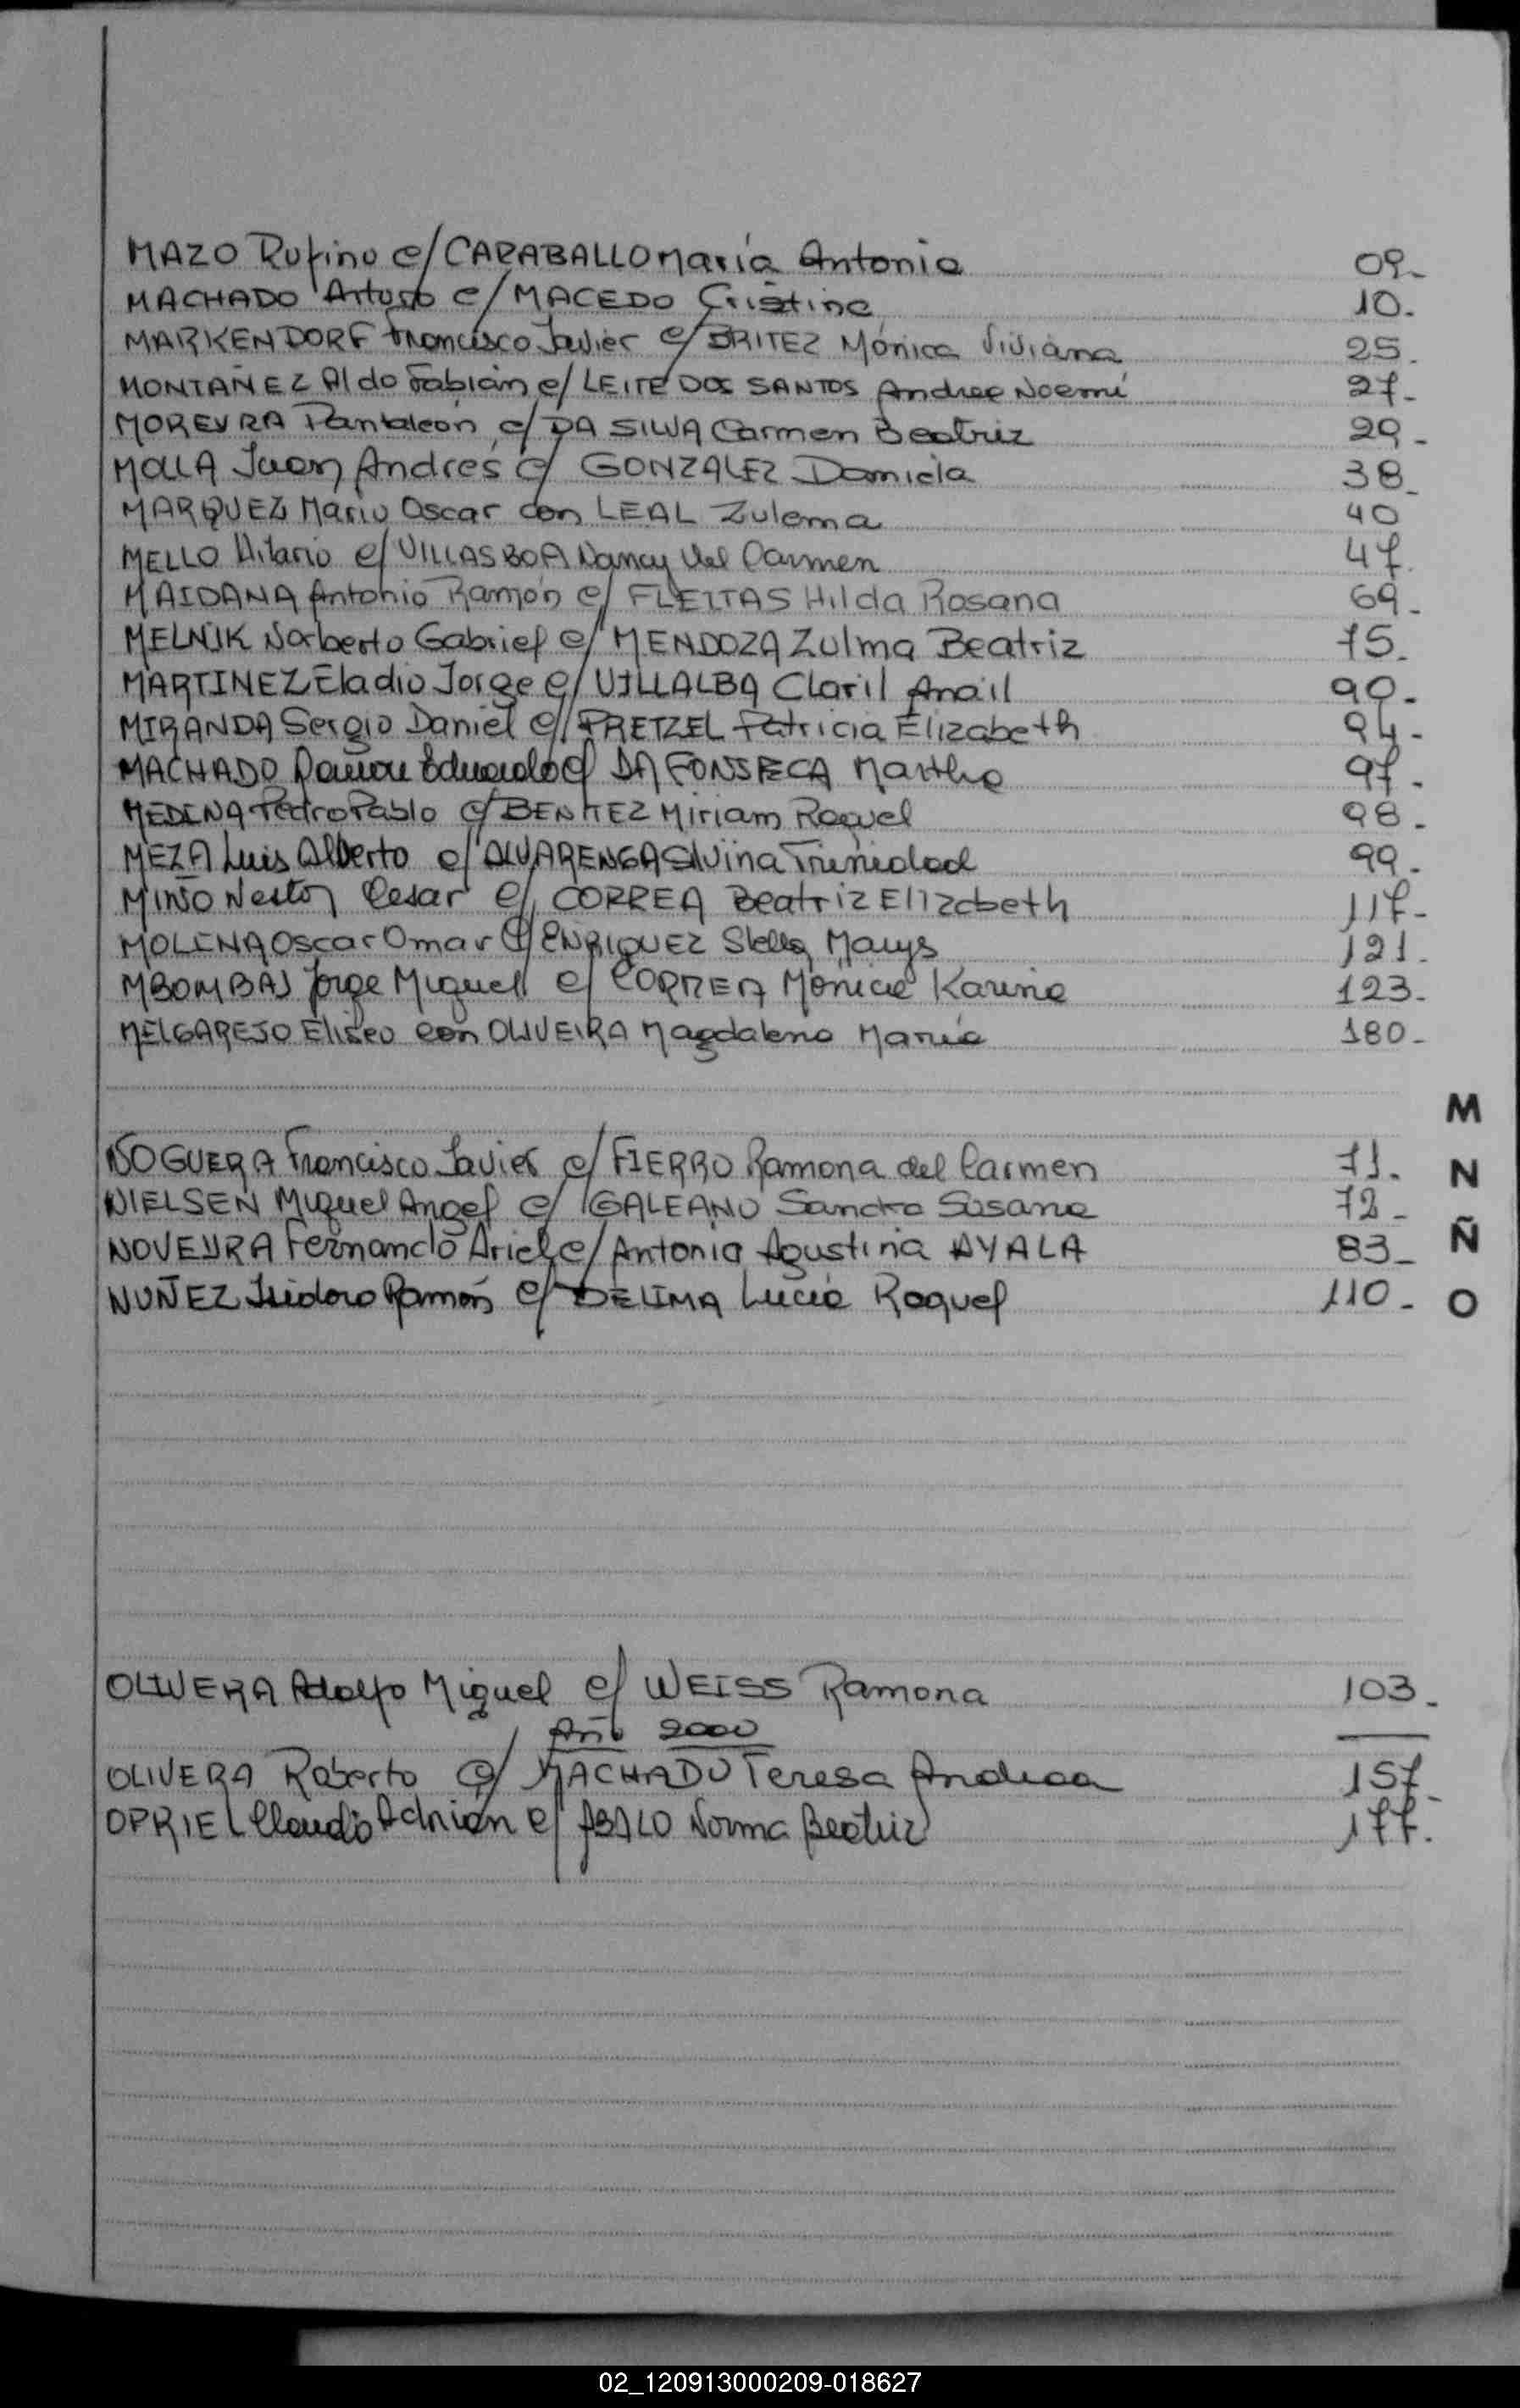 MAZO Rufino c/ CARABALLO María Antonia 09-
MACHADO Arturo c/ MACEDO Cristina 10.
MARKENDORF Francisco Javier c/ BRITEZ Mónica Viviana 25.
MONTAÑEZ Aldo Fabián c/ LEITE DOS SANTOS Andrea Noemí 27-
MOREYRA Pantaleón c/ DA SILVA Carmen Beatriz 29-
MOLLA Juan Andrés c/ GONZALEZ Daniela 38-
MARQUEZ Mario Oscar con LEAL Zulema 40
MELLO Hilario c/ VILLASBOA Nancy del Carmen 47.
MAIDANA Antonio Ramón c/ FLEITAS Hilda Rosana 69-
MELNIK Norberto Gabriel c/ MENDOZA Zulma Beatriz 75-
MARTINEZ Eladio Jorge c/ VILLALBA Claril Anail 90-
MIRANDA Sergio Daniel c/ PRETZEL Patricia Elizabeth 94-
MACHADO Ramon Eduardo c/ DA FONSECA Martha 97.
MEDINA Pedro Pablo c/ BENITEZ Miriam Raquel 98-
MEZA Luis Alberto c/ ALVARENGA Silvina Trinidad 99-
MIÑO Nestor Cesar c/ CORREA Beatriz Elizabeth 117-
MOLINA Oscar Omar c/ ENRIQUEZ Stella Marys 121.
MBOMBAJ Jorge Miguel c/ CORREA Mónica Karina 123-
MELGAREJO Eliseo con OLIVEIRA Magdalena María 180-
M
NOGUERA Francisco Javier c/ FIERRO Ramona del Carmen 71. N
NIELSEN Miguel Angel c/ GALEANO Sandra Susana 72-
NOVEYRA Fernando Ariel c/ Antonia Agustina AYALA 83- Ñ
NUÑEZ Isidoro Ramón c/ DELIMA Lucía Raquel 110- O
OLIVERA Adolfo Miguel c/ WEISS Ramona 103-
Año 2000
OLIVERA Roberto c/ MACHADO Teresa Andrea 157-
OPRIEL Claudio Adrián c/ ABALO Norma Beatriz 177.
02_120913000209-018627